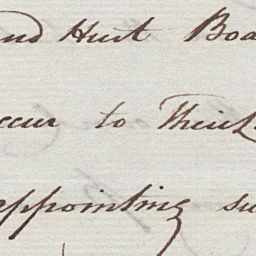 and Hurt Boa
ccur to Their L
appointing su